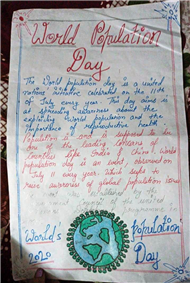 World Population
Day
The World population day is a united
nations initiative celebrated on the 11th
of July every year. The day aims is
at spreading awareness about the
exploding world population and the
importance of reproductive health
Population it and is supposed to be
one of the leading concerns of
countries like India & China! World
population day is an event observed on
July 11 every year. Which seeks to
raise awareness of global population issue
by the
council of the united
programme
World's Population
2020 Day